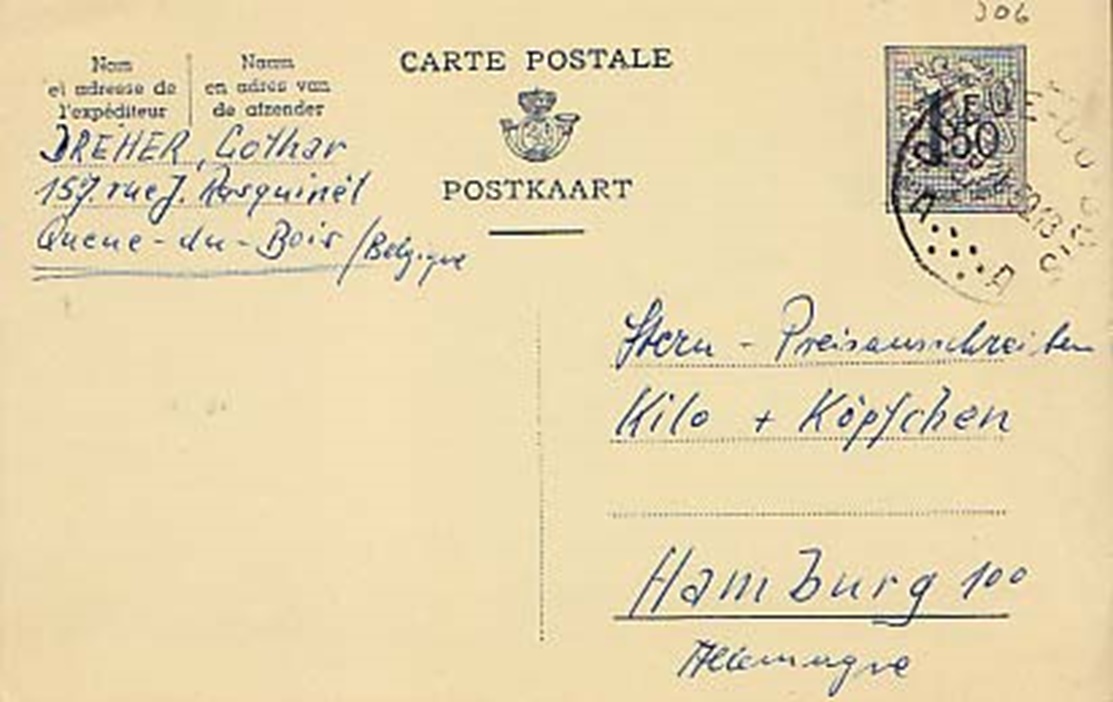 306
Nom
et adresse de
l'expéditeur
Naam
en adres van
de afzender
CARTE POSTALE
POSTKAART
1F50
DREHER, Lothar
157. rue J. Rasquinet
Queue-du-Bois / Belgique
Stern - Preisausschreiben
Kilo + Köpfchen
Hamburg 100
Allemagne